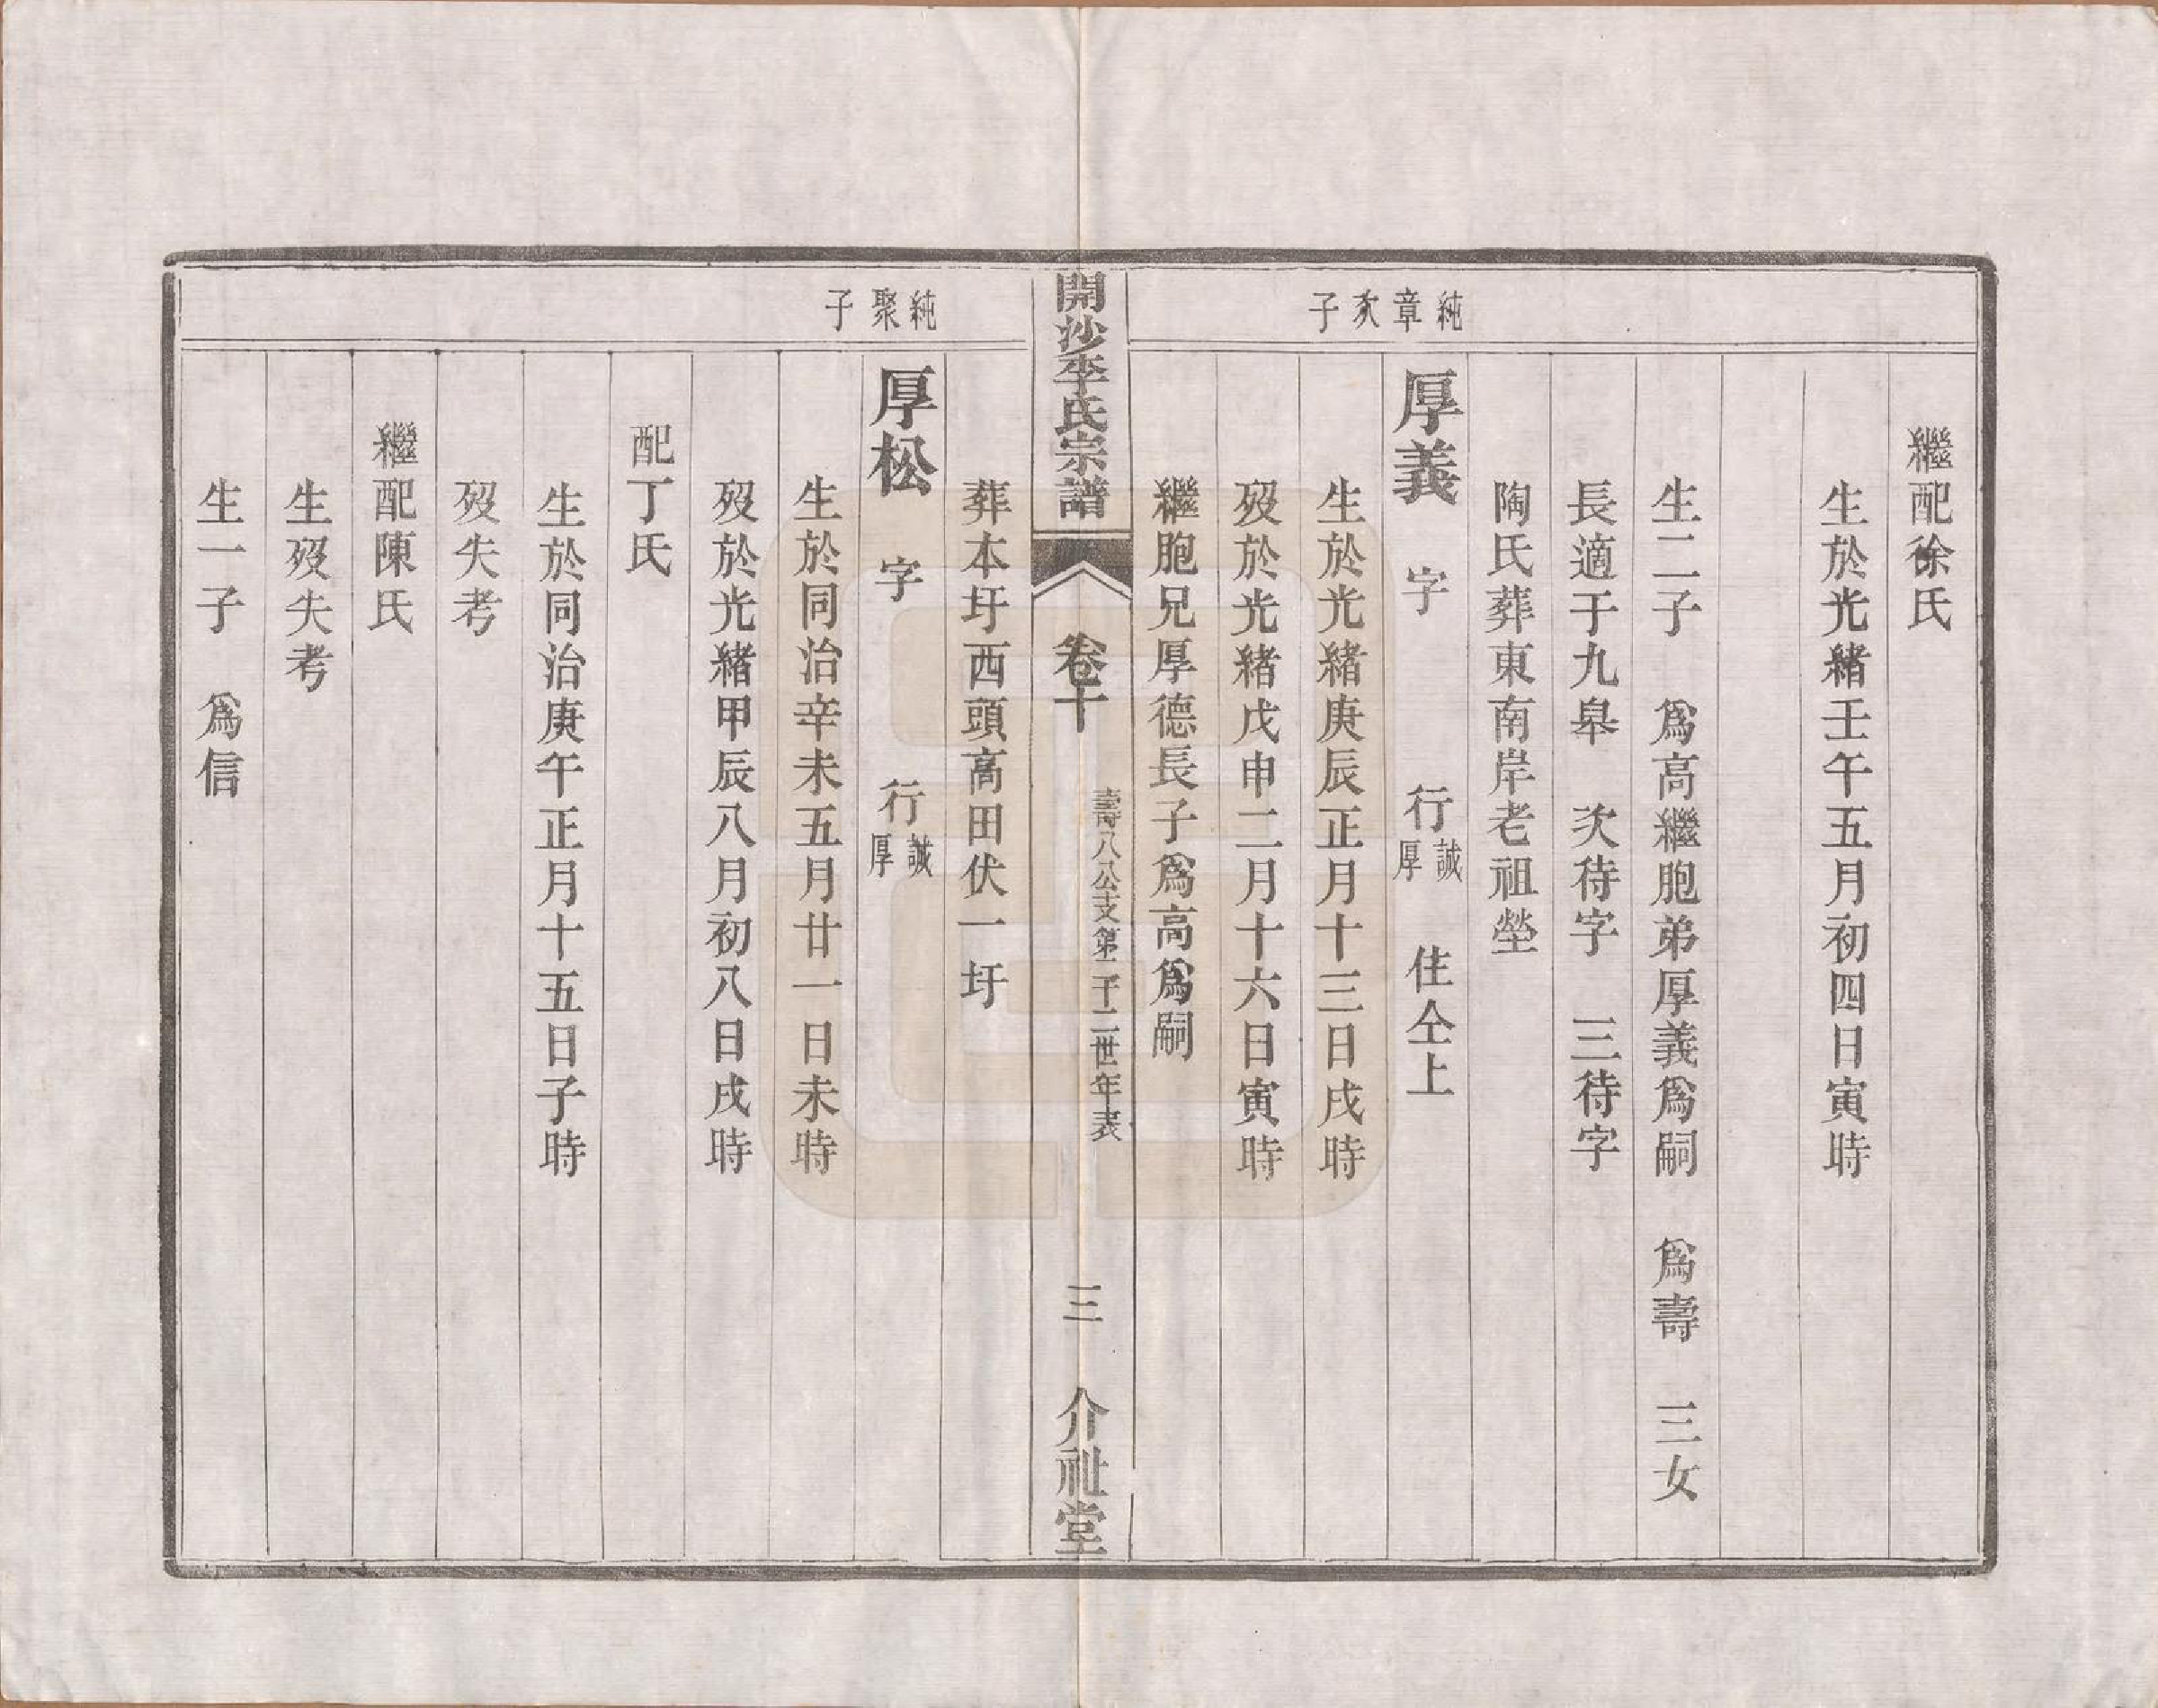 繼配徐氏
生於光緒壬午五月初四日寅時
生二子 爲高繼胞弟厚義爲嗣 爲壽 三女
長適于九皋 次待字 三待字
陶氏葬東南岸老祖塋
純章次子
厚義 字 行誠厚 住仝上
生於光緒庚辰正月十三日戌時
歿於光緒戊申二月十六日寅時
繼胞兄厚德長子爲高爲嗣
開沙李氏宗譜 卷十 壽八公支第二十二世年表 三 介祉堂
葬本圩西頭高田伏一圩
純聚子
厚松 字 行誠厚
生於同治辛未五月廿一日未時
歿於光緒甲辰八月初八日戌時
配丁氏
生於同治庚午正月十五日子時
歿失考
繼配陳氏
生歿失考
生一子 爲信